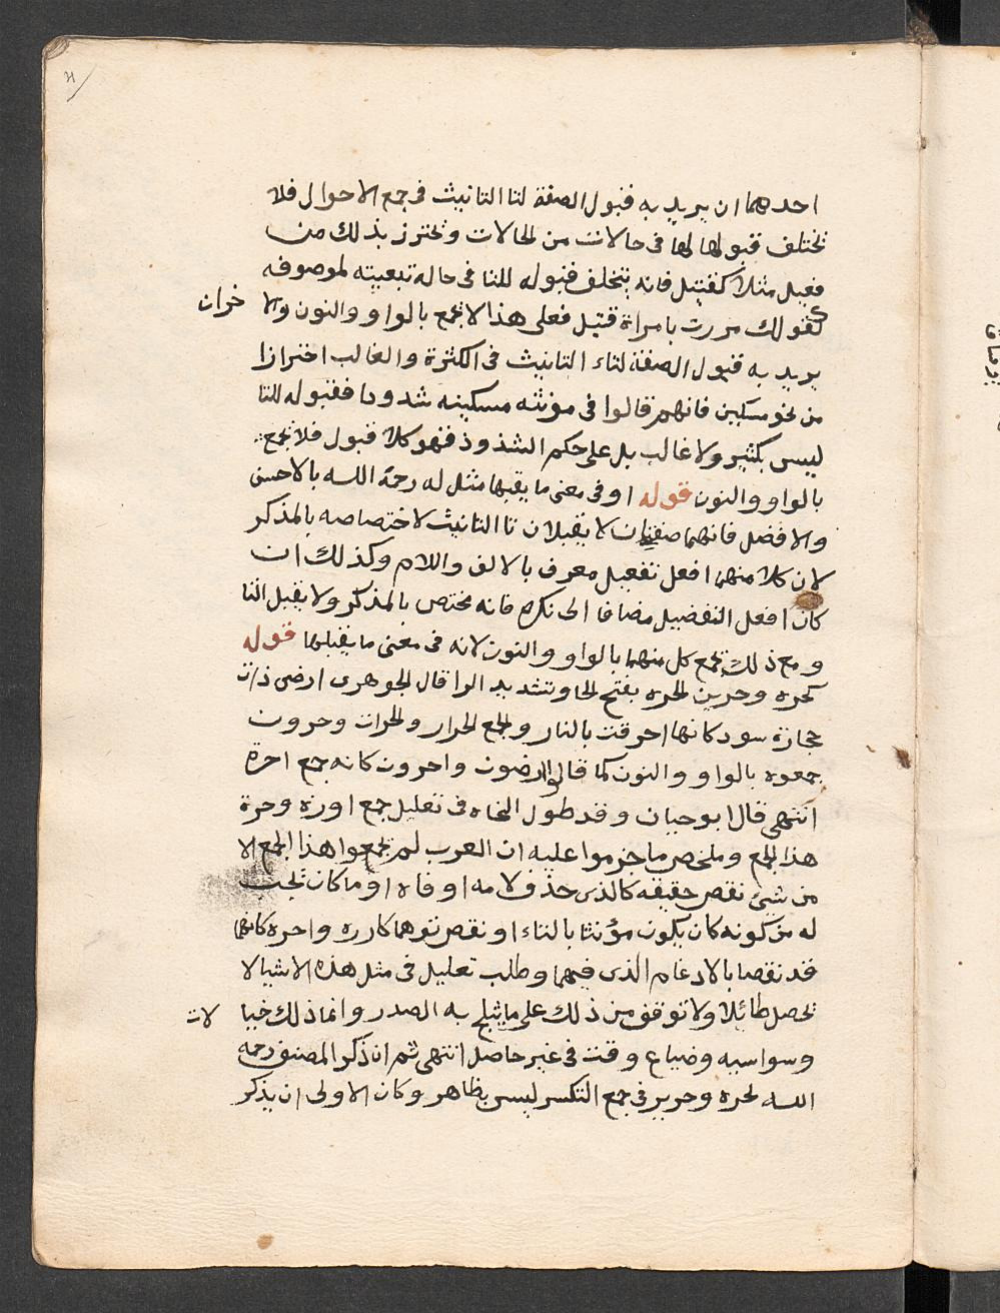 احدهما ان يريد به قبول الصفة لتا التانيث فى جمع الاحوال فلا
تختلف قبولها لها فى حالات من الحالات وتحترز بذلك من
فعيل مثلا كقتيل فانه يتخلف قبوله للتا فى حاله تبعيته لموصوفه
كقولك مررت بامراة قتيل فعلى هذا لا تجمع بالواو والنون والا خران
يريد به قبول الصفة لتاء التانيث فى الكثرة والغالب احترازا
من نحو مسكين فانهم قالوا فى مونثه مسكينه شدودا فقبوله للتا
ليس بكثير ولا غالب بل على حكم الشذوذ فهو كلا قبول فلا تجمع
بالواو والنون قوله او فى معنى ما يقبلها مثل له رحمة الله بالاحسن
والافضل فانهما صفتان لا يقبلان تا التانيث لاختصاصه بالمذكر
لان كلا منهما افعل تفعيل معرف بالالف واللام وكذلك ان
كان افعل التفضيل مضافا الى نكره فانه مختص بالمذكر ولا يقبل التا
ومع ذلك تجمع كل منهما بالواو والنون لانه فى معنى ما يقبلها قوله
كحره وحرين الحره بفتح الحا وتشديد الرا قال الجوهرى ارضى ذات
حجارة سود كانها احرقت بالنار والجمع الحرار والحرات وحرون
جمعوه بالواو والنون كما قالوا ارضون واحرون كانه جمع احرة
انتهى قال ابو حيان وقد طول النحاه فى تعليل جمع اوزه وحرة
هذا الجمع وملخص ما خرموا عليه ان العرب لم تجمعوا هذا الجمع الا
من شى نقص حقيقه كالذى حذف لامه او فاه او ما كان تجب
له من كونه كان يكون مؤنثا بالتاء او نقص توهما كاره واحره كانهما
قد نقصا بالادغام الذى فيهما وطلب تعليل فى مثل هذه الاشيا لا
تحصل طائلا ولا توقف من ذلك على ما يثلج به الصدر وانما ذلك خيا لات
وسواسيه وضياع وقت فى غير حاصل انتهى ثم ان ذكر المصنف رحمه
الله لحره وحرير فى جمع التكسر ليس بظاهر وكان الاولى ان يذكر